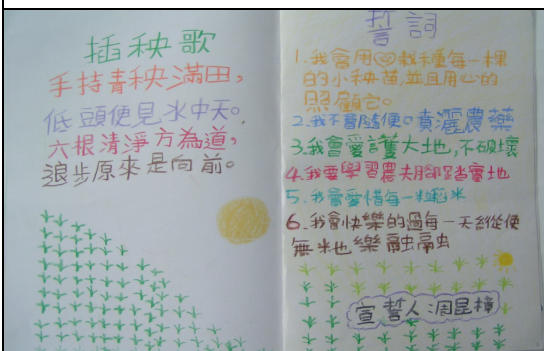 插秧歌
手持青秧滿田，
低頭便見水中天。
六根清淨方為道，
退步原來是向前。
誓詞
1.我會用心栽種每一棵
的小秧苗,並且用心的
照顧它。
2.我不會隨便。噴灑農藥
3.我會愛護大地,不破壞
4.我要學習農夫腳踏實地
5.我會愛惜每一粒稻米
6.我會快樂的過每一天縱使
無米也樂融融
宣誓人:周昆樟